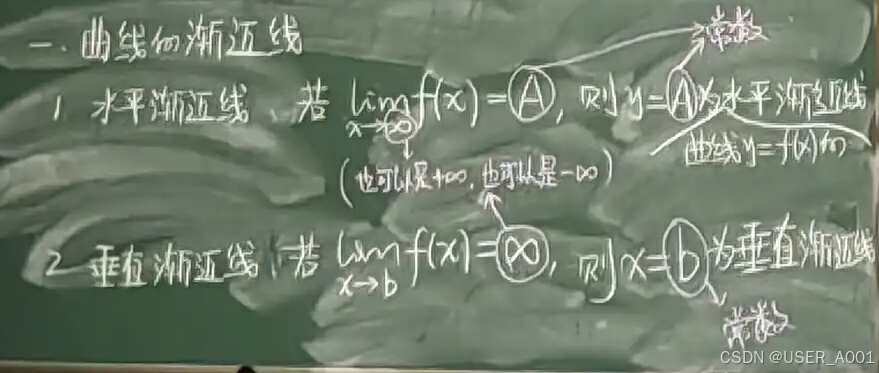 一. 曲线的渐近线
常数
1 水平渐近线. 若 lim f(x)=A, 则y=A为水平渐近线
x→∞
曲线y=f(x)的
(也可以是+∞, 也可以是-∞)
2 垂直渐近线. 若 lim f(x)=∞, 则x=b为垂直渐近线
x→b
常数
CSDN @USER_A001